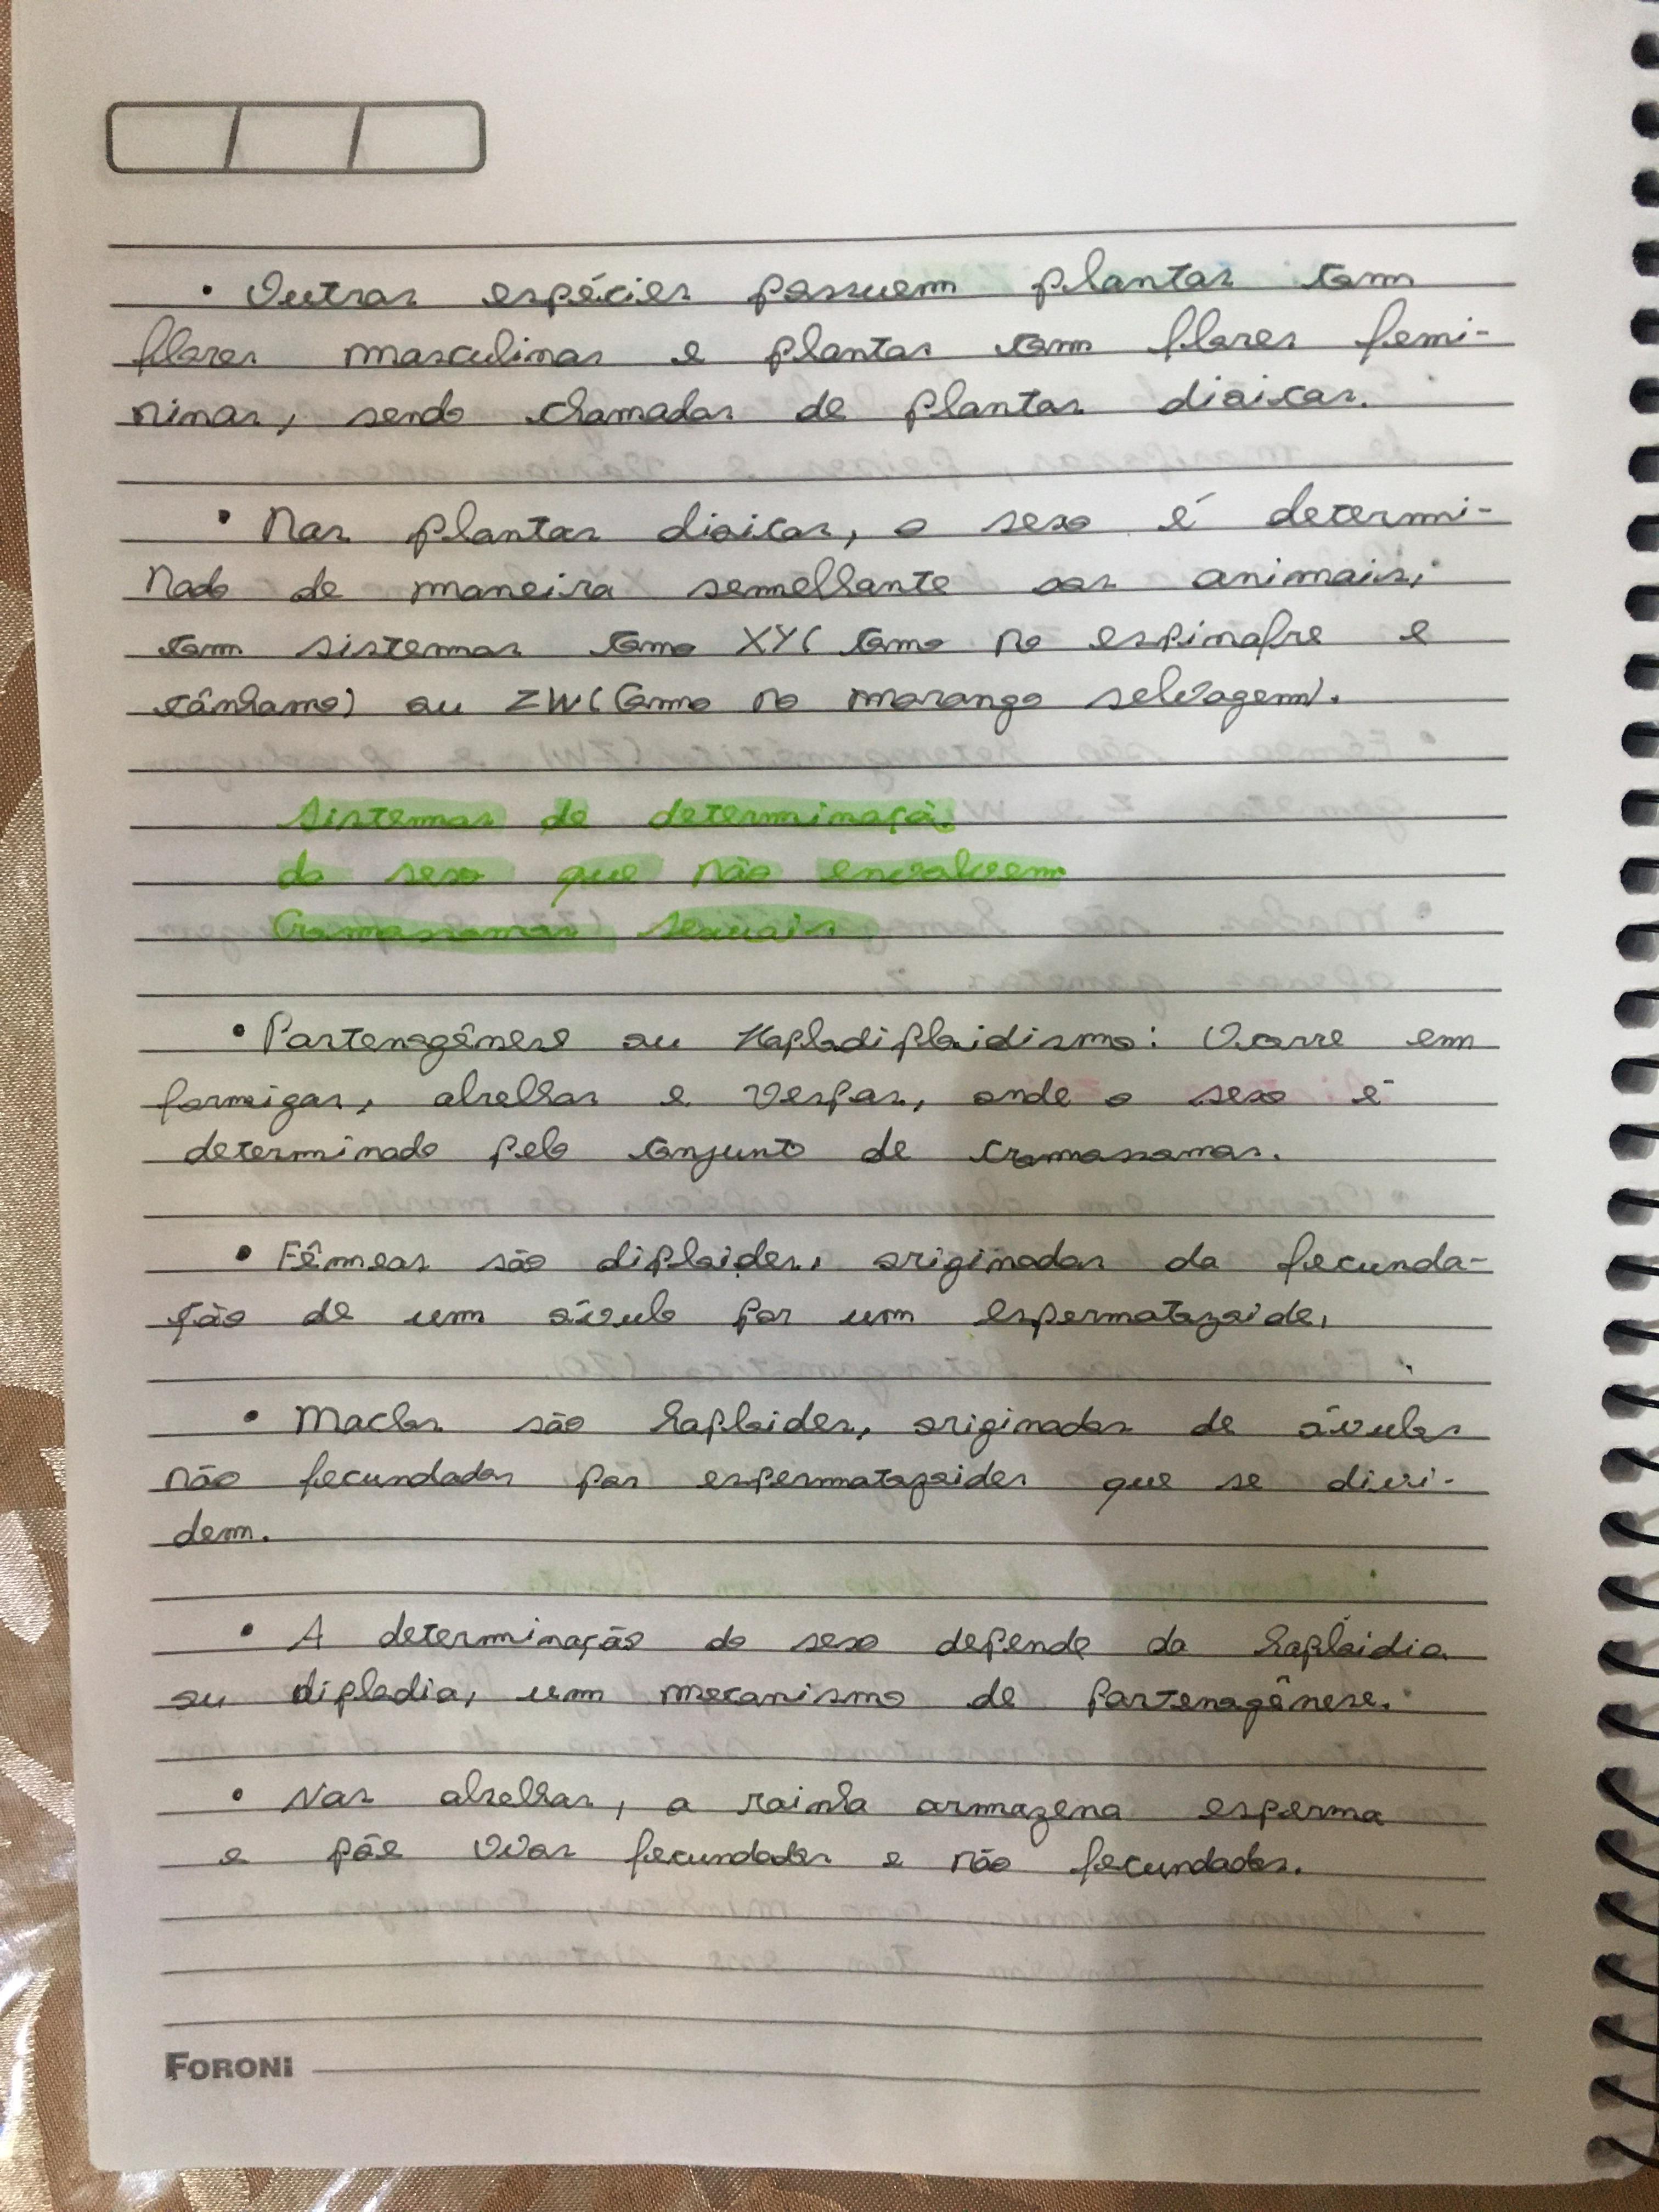 • Outras espécies possuem plantas com
flores masculinas e plantas com flores femi-
ninas, sendo chamadas de plantas dioicas.
• Nas plantas dioicas, o sexo é determi-
nado de maneira semelhante aos animais,
com sistemas como XY (como no espinafre e
cânhamo) ou ZW (como no morango selvagem).
Sistemas de determinação
do sexo que não envolvem
Cromossomos sexuais
• Partenogênese ou Haplodiploidismo: Ocorre em
formigas, abelhas e vespas, onde o sexo é
determinado pelo conjunto de cromossomos.
• Fêmeas são diploides, originadas da fecunda-
ção de um óvulo por um espermatozoide.
• Machos são haploides, originados de óvulos
não fecundados por espermatozoides que se divi-
dem.
• A determinação do sexo depende da haploidia
ou diplodia, um mecanismo de partenogênese.
• Nas abelhas, a rainha armazena esperma
e põe ovos fecundados e não fecundados.
FORONI